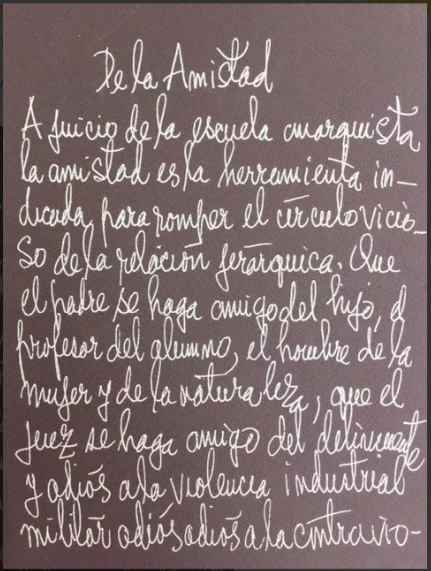 De la Amistad
A juicio de la escuela anarquista
la amistad es la herramienta in-
dicada para romper el círculo vicio-
so de la relación jerárquica. Que
el padre se haga amigo del hijo, el
profesor del alumno, el hombre de la
mujer y de la naturaleza, que el
juez se haga amigo del delincuente
y adiós a la violencia industrial
militar adiós adiós a la contravio-